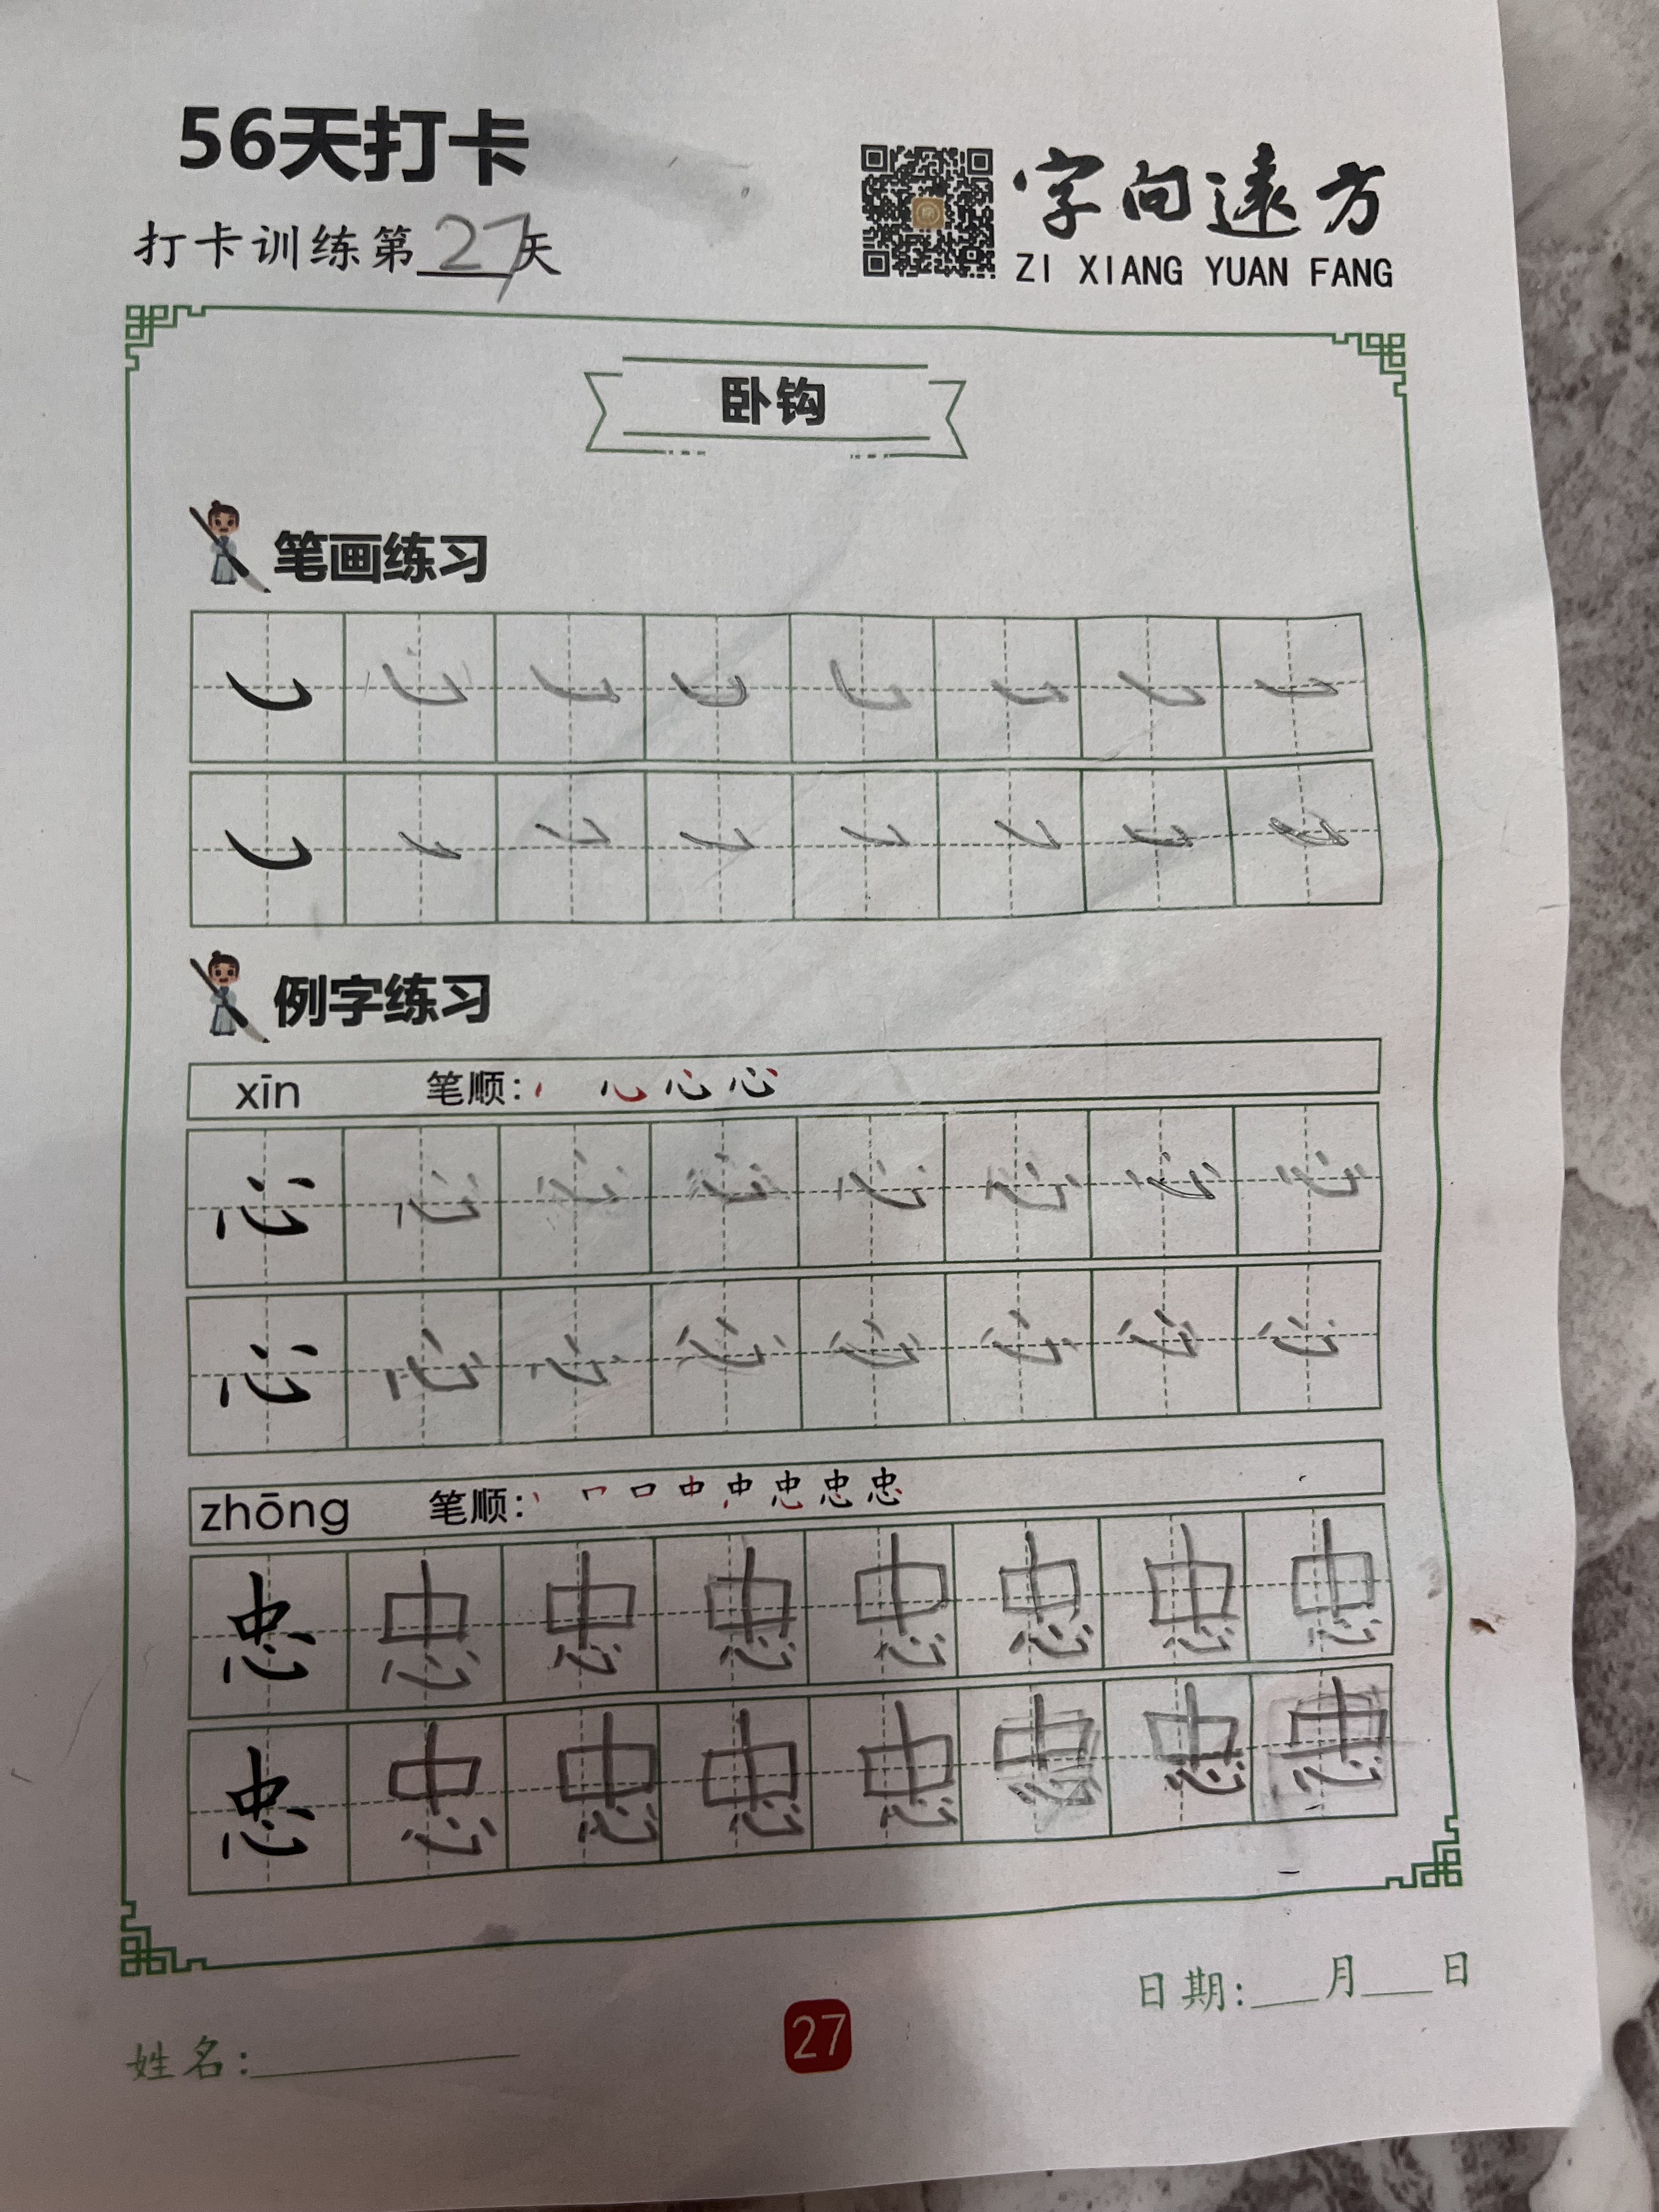 56天打卡
打卡训练第27天
字向遠方
ZI XIANG YUAN FANG
卧钩
笔画练习
㇃ ㇃ ㇃ ㇃ ㇃ ㇃ ㇃ ㇃
㇃ ㇃ ㇃ ㇃ ㇃ ㇃ ㇃ ㇃
例字练习
xīn 笔顺：
心 心 心 心 心 心 心 心
心 心 心 心 心 心 心 心
zhōng 笔顺：
忠 忠 忠 忠 忠 忠 忠 忠
忠 忠 忠 忠 忠 忠 忠 忠
日期：___月___日
姓名：
27